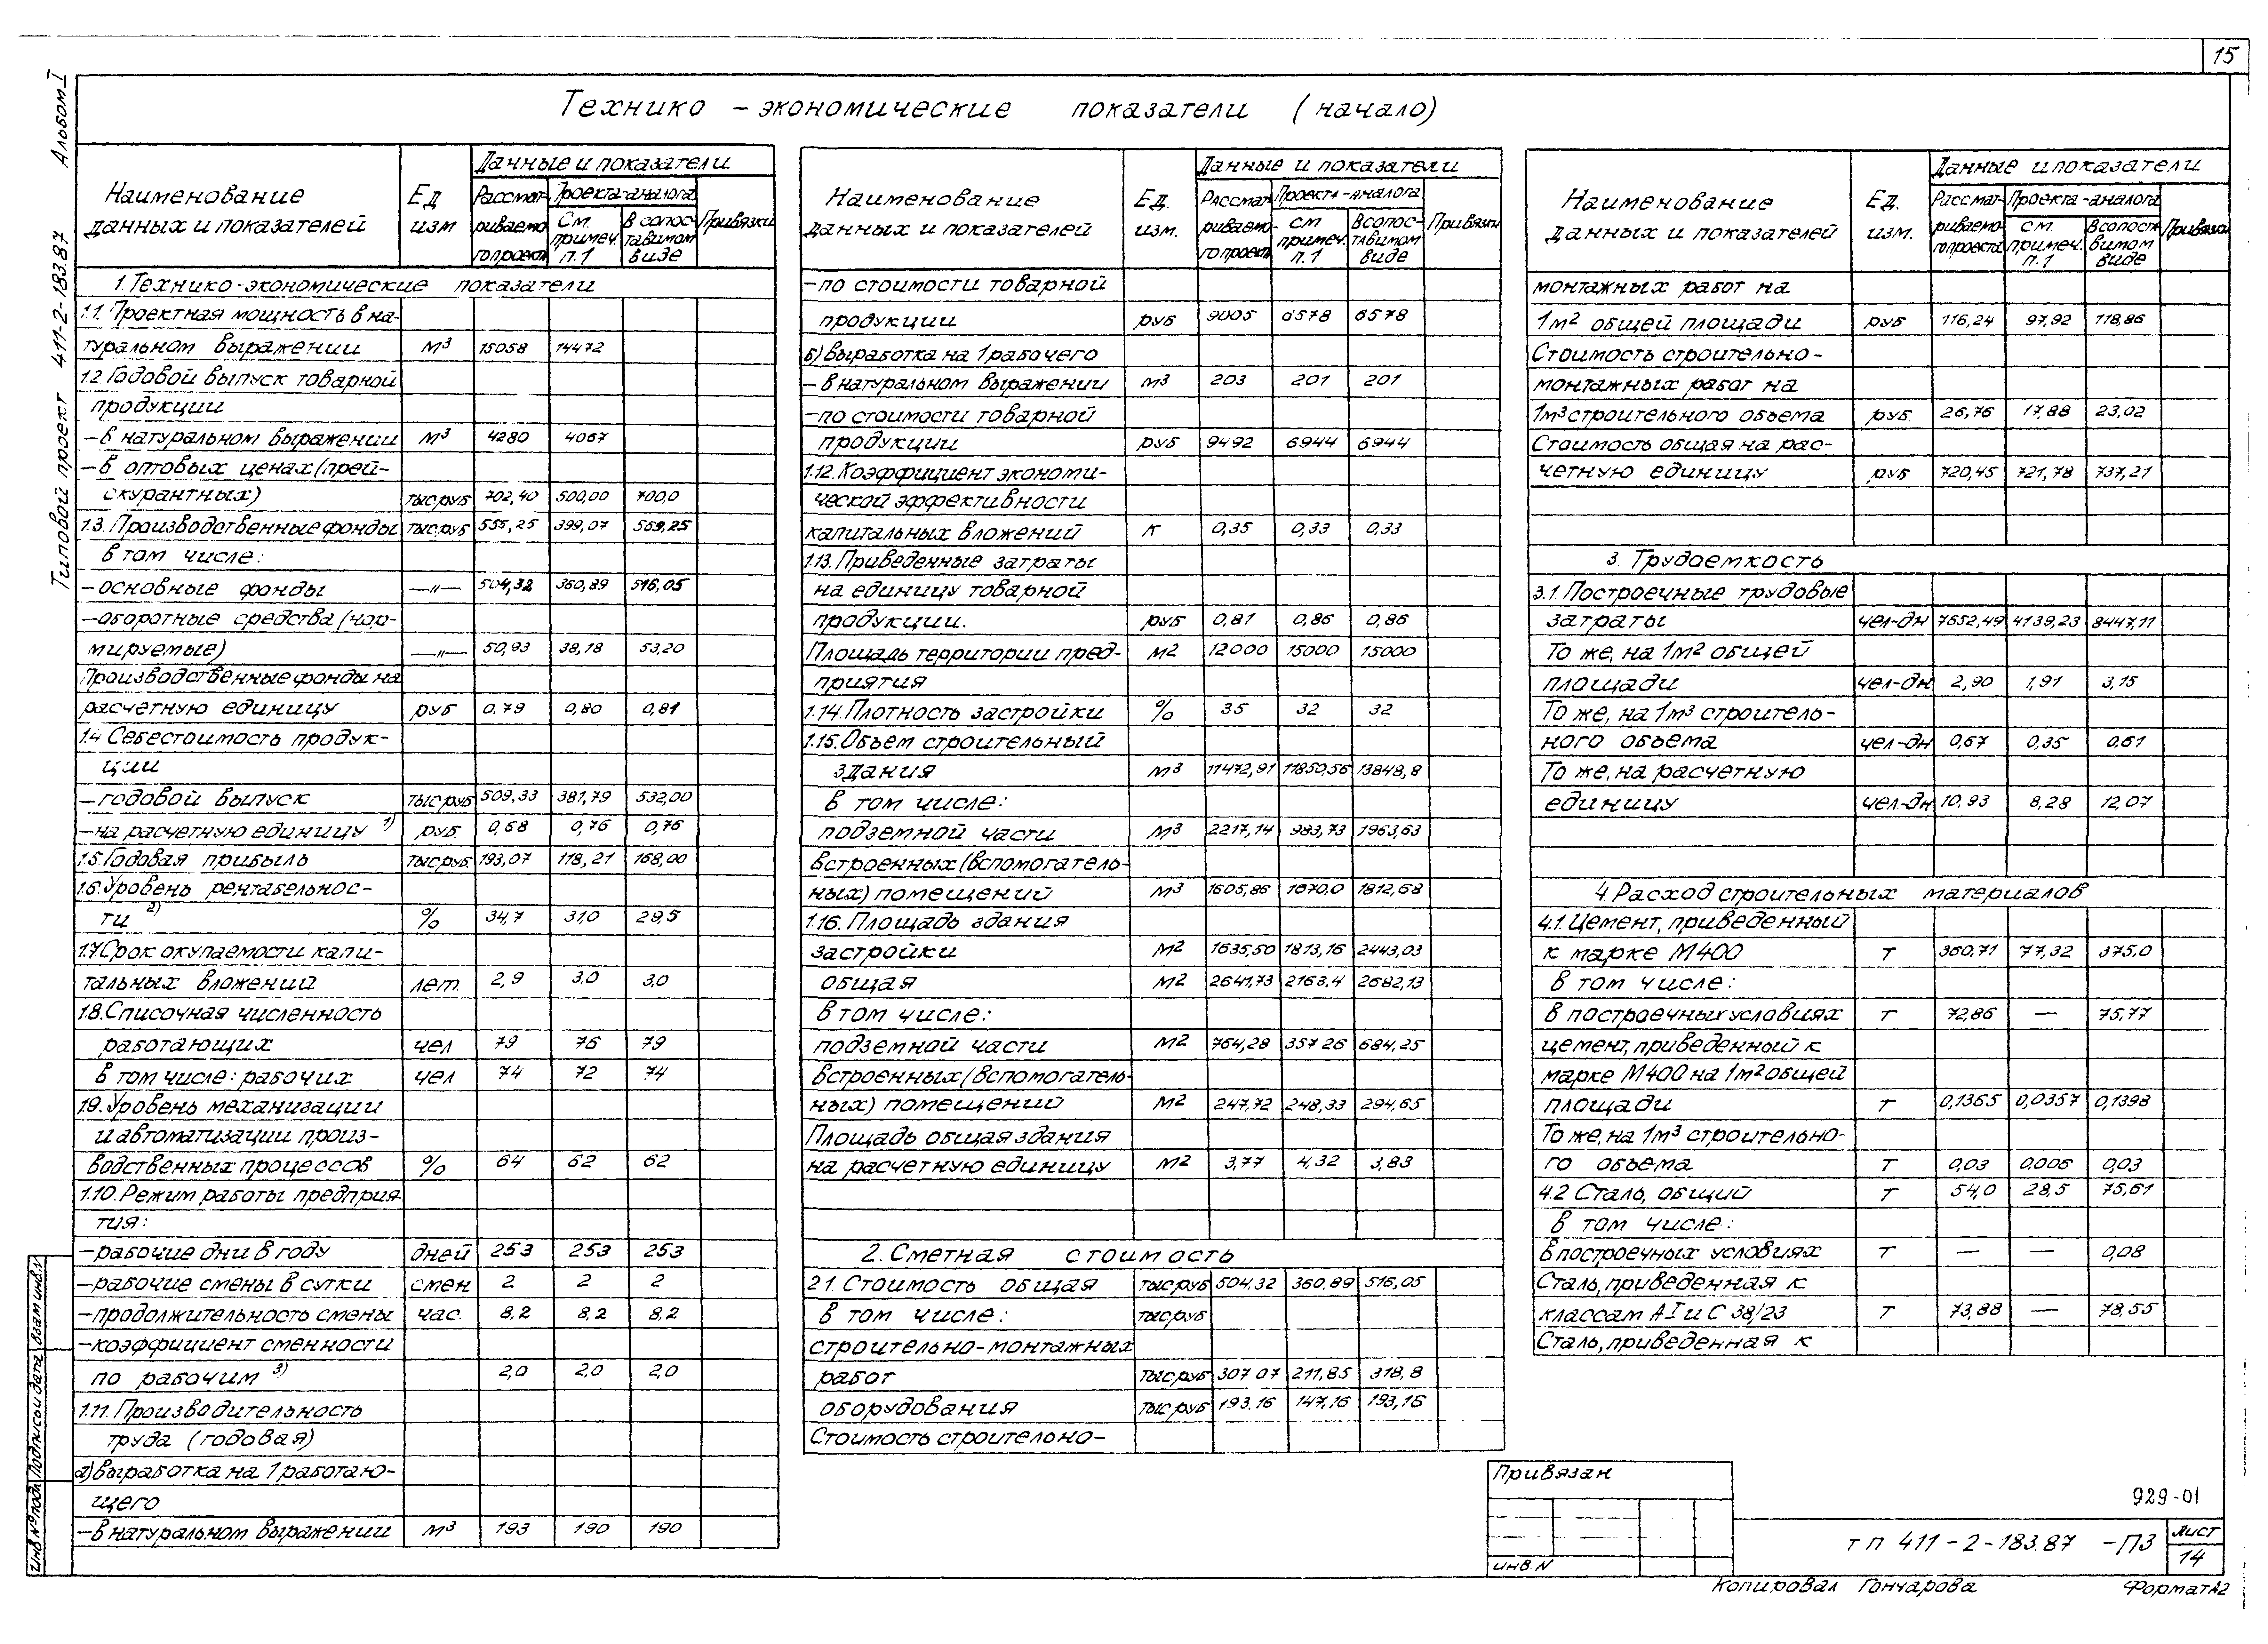 15
Альбом I
Типовой проект 411-2-183.87
Технико – экономические показатели (начало)
Наименование данных и показателей | Ед изм | Данные и показатели
Рассматриваемого проекта | Проекта-аналога | Привязки
См. примеч. п.1 | В сопоставимом виде
1. Технико-экономические показатели
1.1. Проектная мощность в на-
туральном выражении м³ 15058 14472
1.2 Годовой выпуск товарной
продукции
– в натуральном выражении м³ 4280 4067
– в оптовых ценах (прей-
скурантных) тыс руб 702,40 500,00 700,0
1.3. Производственные фонды тыс руб 555,25 399,07 569,25
в том числе:
– основные фонды —"— 504,32 360,89 516,05
– оборотные средства (нор-
мируемые) —"— 50,93 38,18 53,20
Производственные фонды на
расчетную единицу руб 0.79 0,80 0,81
1.4 Себестоимость продук-
ции
– годовой выпуск тыс руб 509,33 381,79 532,00
– на расчетную единицу 1) руб 0,68 0,76 0,76
1.5. Годовая прибыль тыс руб. 193,07 118,21 168,00
1.6. Уровень рентабельнос-
ти 2) % 34,7 31,0 29,5
1.7. Срок окупаемости капи-
тальных вложений лет. 2,9 3,0 3,0
1.8. Списочная численность
работающих чел 79 76 79
в том числе: рабочих чел 74 72 74
1.9. Уровень механизации
и автоматизации произ-
водственных процессов % 64 62 62
1.10. Режим работы предприя
тия:
– рабочие дни в году дней 253 253 253
– рабочие смены в сутки смен 2 2 2
– продолжительность смены час. 8,2 8,2 8,2
– коэффициент сменности
по рабочим 3) 2,0 2,0 2,0
1.11. Производительность
труда (годовая)
а) выработка на 1 работаю-
щего
– в натуральном выражении м³ 193 190 190
Наименование данных и показателей | Ед. изм. | Данные и показатели
Рассматриваемо-го проекта | Проекта-аналога | Привязки
см примеч. п.1 | В сопос-тавимом виде
– по стоимости товарной
продукции руб 9005 6578 6578
б) выработка на 1 рабочего
– в натуральном выражении м³ 203 201 201
– по стоимости товарной
продукции руб 9492 6944 6944
1.12. Коэффициент экономи-
ческой эффективности
капитальных вложений К 0,35 0,33 0,33
1.13. Приведенные затраты
на единицу товарной
продукции. руб 0,81 0,86 0,86
Площадь территории пред- м² 12000 15000 15000
приятия
1.14. Плотность застройки % 35 32 32
1.15. Объем строительный
здания м³ 11472,91 11850,56 13848,8
в том числе:
подземной части м³ 2217,14 983,73 1963,63
встроенных (вспомогатель-
ных) помещений м³ 1605,86 1670,0 1812,68
1.16. Площадь здания
застройки м² 1635,50 1813,16 2443,03
общая м² 2641,73 2163,4 2682,13
в том числе:
подземной части м² 764,28 357 26 684,25
встроенных (вспомогатель-
ных) помещений м² 247,72 248,33 294,65
Площадь общая здания
на расчетную единицу м² 3,77 4,32 3,83
2. Сметная стоимость
2.1. Стоимость общая тыс руб 504,32 360,89 516,05
в том числе: тыс руб
строительно-монтажных
работ тыс руб 307 07 211,85 318,8
оборудования тыс руб 193.16 147,16 193,16
Стоимость строительно-
Наименование данных и показателей | Ед. изм. | Данные и показатели
Рассматриваемо-го проекта | Проекта-аналога | Привязки
см примеч. п.1 | В сопоставимом виде
монтажных работ на
1м² общей площади руб 116,24 97,92 118,86
Стоимость строительно-
монтажных работ на
1м³ строительного объема руб. 26,76 17,88 23,02
Стоимость общая на рас-
четную единицу руб 720,45 721,78 737,21
3. Трудоемкость
3.1. Построечные трудовые
затраты чел-дн 7652,49 4139,23 8447,11
То же, на 1м² общей
площади чел-дн 2,90 1,91 3,15
То же, на 1м³ строитель-
ного объема чел-дн 0,67 0,35 0,61
То же, на расчетную
единицу чел-дн 10,93 8,28 12,07
4. Расход строительных материалов
4.1. Цемент, приведенный
к марке М400 т 360,71 77,32 375,0
в том числе:
в построечных условиях т 72,86 — 75,77
цемент, приведенный к
марке М400 на 1м² общей
площади т 0,1365 0,0357 0,1398
То же, на 1м³ строительно-
го объема т 0,03 0,006 0,03
4.2 Сталь, общий т 54,0 28,5 75,61
в том числе:
в построечных условиях т — — 0,08
Сталь, приведенная к
классам А-I и С 38/23 т 73,88 — 78,55
Сталь, приведенная к
Привязан
инв N
929-01
тп 411-2-183.87 -ПЗ
Лист
14
Копировал Гончарова
Формат А2
Инв № подл Подпись и дата Взам инв. N